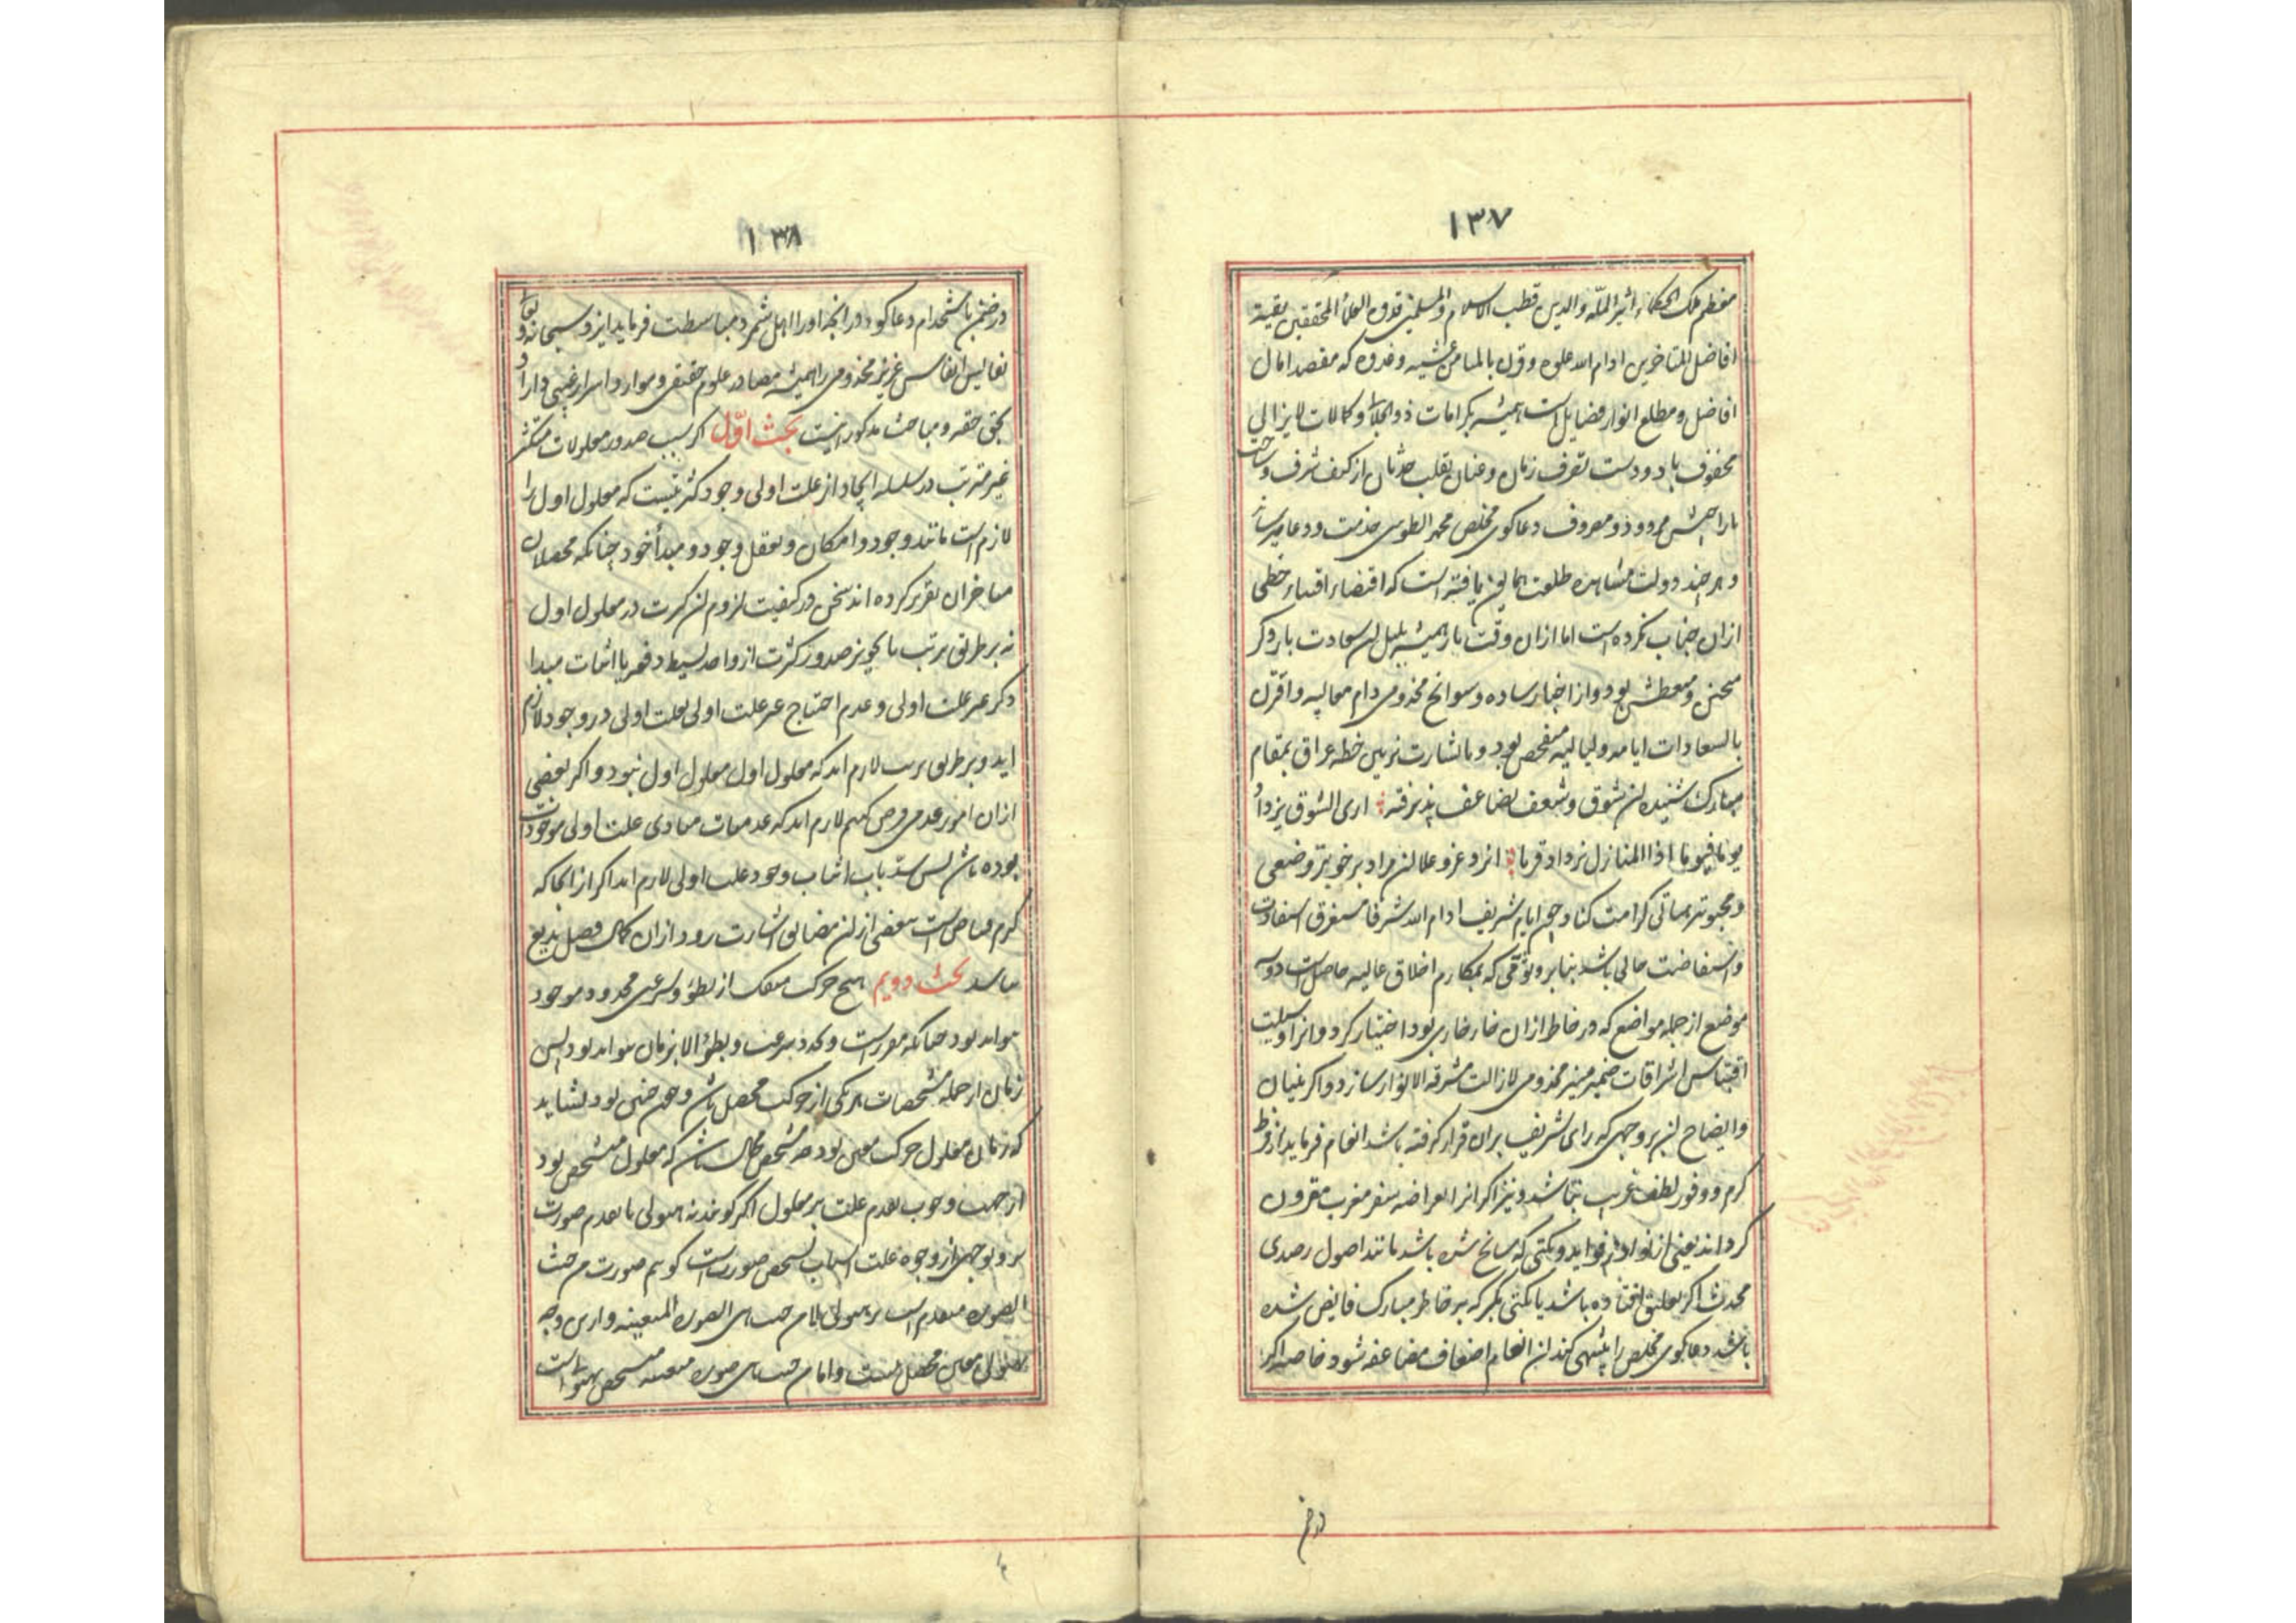 ۱۳۷
معظم ملک الحکماء اثیر الملّه والدین قطب الاسلام والمسلمین قدوه العلماء المحققین بقیة
افاضل المتاخرین ادام الله علوه وقرن بالمیامن عشیه وغدوه که مقصد امال
افاضل و مطلع انوار فضایل است همیشه بکرامات ذوالجلال و کمالات لایزالی
محفوف باد و دست تصرف زمان و عنان تقلب حدثان از کنف شرف و
مصروف دعاکوی مخلص محمد الطوسی خدمت و دعا میرساند
و هر چند دولت مشاهده طلعت همایون نیافته است که اقتضاء اقتناء حظی
ازان جناب نکرده است اما ازان وقت باز همیشه بنیل آن سعادت بار دکر
و متعطش بود و از اخبار ساده و سوانح مخدومی دام معالیه و اقترن
بالسعادات ایامه و لیالیه متفحص بود و تا بشارت خطه عراق بمقام
مبارک شنیده آن شوق و شعف تضاعف پذیرفته اری الشوق یزداد
یوما فیوما اذا المنازل تزداد قربا ایزد عز و علا آن مراد بر خوبتر وضعی
و محبوبتر کرامت کناد و چون ایام شریف ادام الله شرفها مستغرق استفادت
و استفاضت حالی باشد بنابر وثوقی که بمکارم اخلاق عالیه حاصلست دو سه
موضع از جمله مواضع که در خاطر ازان خار خاری بود اختیار کرد و انرا وسیلت
اقتباس اشراقات ضمیر منیر مخدومی لازالت مشرقة الانوار سازد و اکر بتبیان
و ایضاح آن بر وجهی که رای شریف بران قرار کرفته باشد انعام فرماید از فرط
کرم و وفور لطف غریب نباشد و نیز اکر انرا بعراضه سفر مغرب مقرون
کرداند یعنی از نوادر فواید و نکتی که سانح شده باشد مانند اصول رصدی
محدث اکر تعلیق افتاده باشد یا نکتی بکر که بر خاطر مبارک فایض شده
باشد دعاکوی مخلص را منتهی کند آن انعام اضعاف مضاعفه شود خاصه اکر
۱۳۸
در ضمن باستخدام دعاکو و در انچه او را اهل شمرد مباسطت فرماید ایزد سبحانه و تعالی
نفایس انفاس عزیز مخدومی را همیشه مصادر علوم حقیقی و موارد اسرار غیبی داراد
بحق حقه و مباحث مذکور اینست بحث اوّل اکر سبب صدور معلولات متکثر
غیر مترتب در سلسله ایجاد از علت اولی وجود کثرتیست که معلول اول را
لازم است مانند وجود و امکان و تعقل وجود و مبدأ خود چنانکه محصلان
متاخران تقریر کرده اند سخن در کیفیت لزوم آن کثرت در معلول اول
نه بر طریق ترتب یا تجویز صدور کثرت از واحد بسیط دفعة یا اثبات مبدا
دکر غیر علت اولی و عدم احتیاج غیر علت اولی بعلت اولی در وجود لازم
اید و بر طریق ترتب لازم اید که معلول اول معلول اول نبود و اکر بعضی
ازان امور عدمی فرض کنیم لازم اید که عدمیات مبادی علت اولی موجودات
بوده باشد پس سد باب اثبات وجود علت اولی لازم اید اکر از انجا که
کرم فیاضی است ببعضی ازان مضایق اشارت رود ازان کمال فضل بدیع
نباشد بحث دویم هیچ حرکت منفک از بطؤ و سرعتی محدود موجود
نتواند بود چنانکه مقرر است و تحدد سرعت و بطؤ الا بزمان نتواند بود پس
زمان از جمله مشخصات هر یکی از حرکت محصل باشد و چون چنین بود نشاید
که زمان معلول حرکت معین بود چه مشخص محال باشد که معلول متشخص بود
از جهت وجوب تقدم علت بر معلول اکر کویند نه هیولی با تقدم صورت
بر و بوجهی از وجوه علت اسباب تشخص صورتست کویم صورت من حیث
الصورة متقدم است بر هیولی لا من حیث هی الصورة المتعینه و ازین وجه
هیولی معین محصل نیست و اما من حیث هی صورة متعینه متشخص بهیولی است
در ضمن